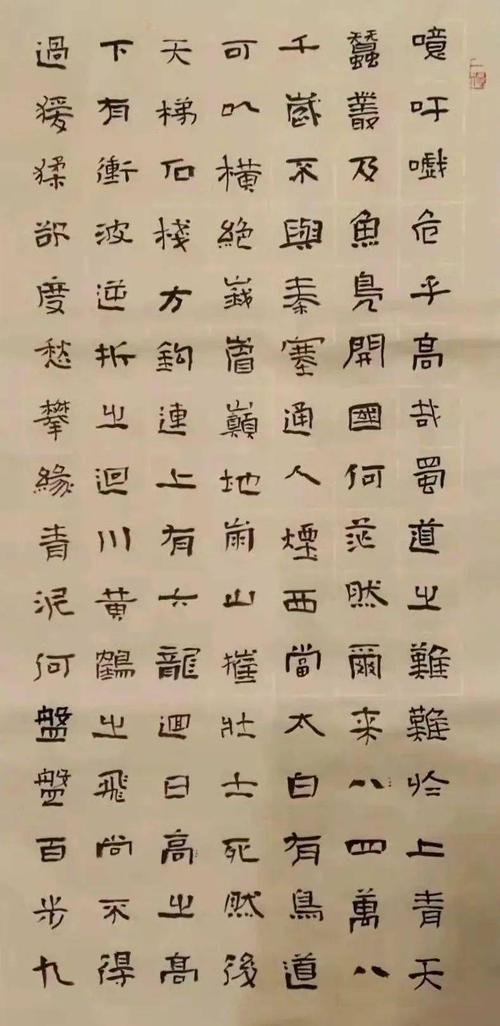 噫吁嚱危乎高哉蜀道之難難於上青天
蠶叢及魚鳧開國何茫然爾来八四萬八
千歲不與秦塞通人煙西當太白有鳥道
可以橫絕峨嵋巔地崩山摧壯士死然後
天梯石棧方鉤連上有六龍迴日高之高
下有衝波逆折之迴川黃鶴之飛尚不得
過猨猱欲度愁攀緣青泥何盤盤百步九